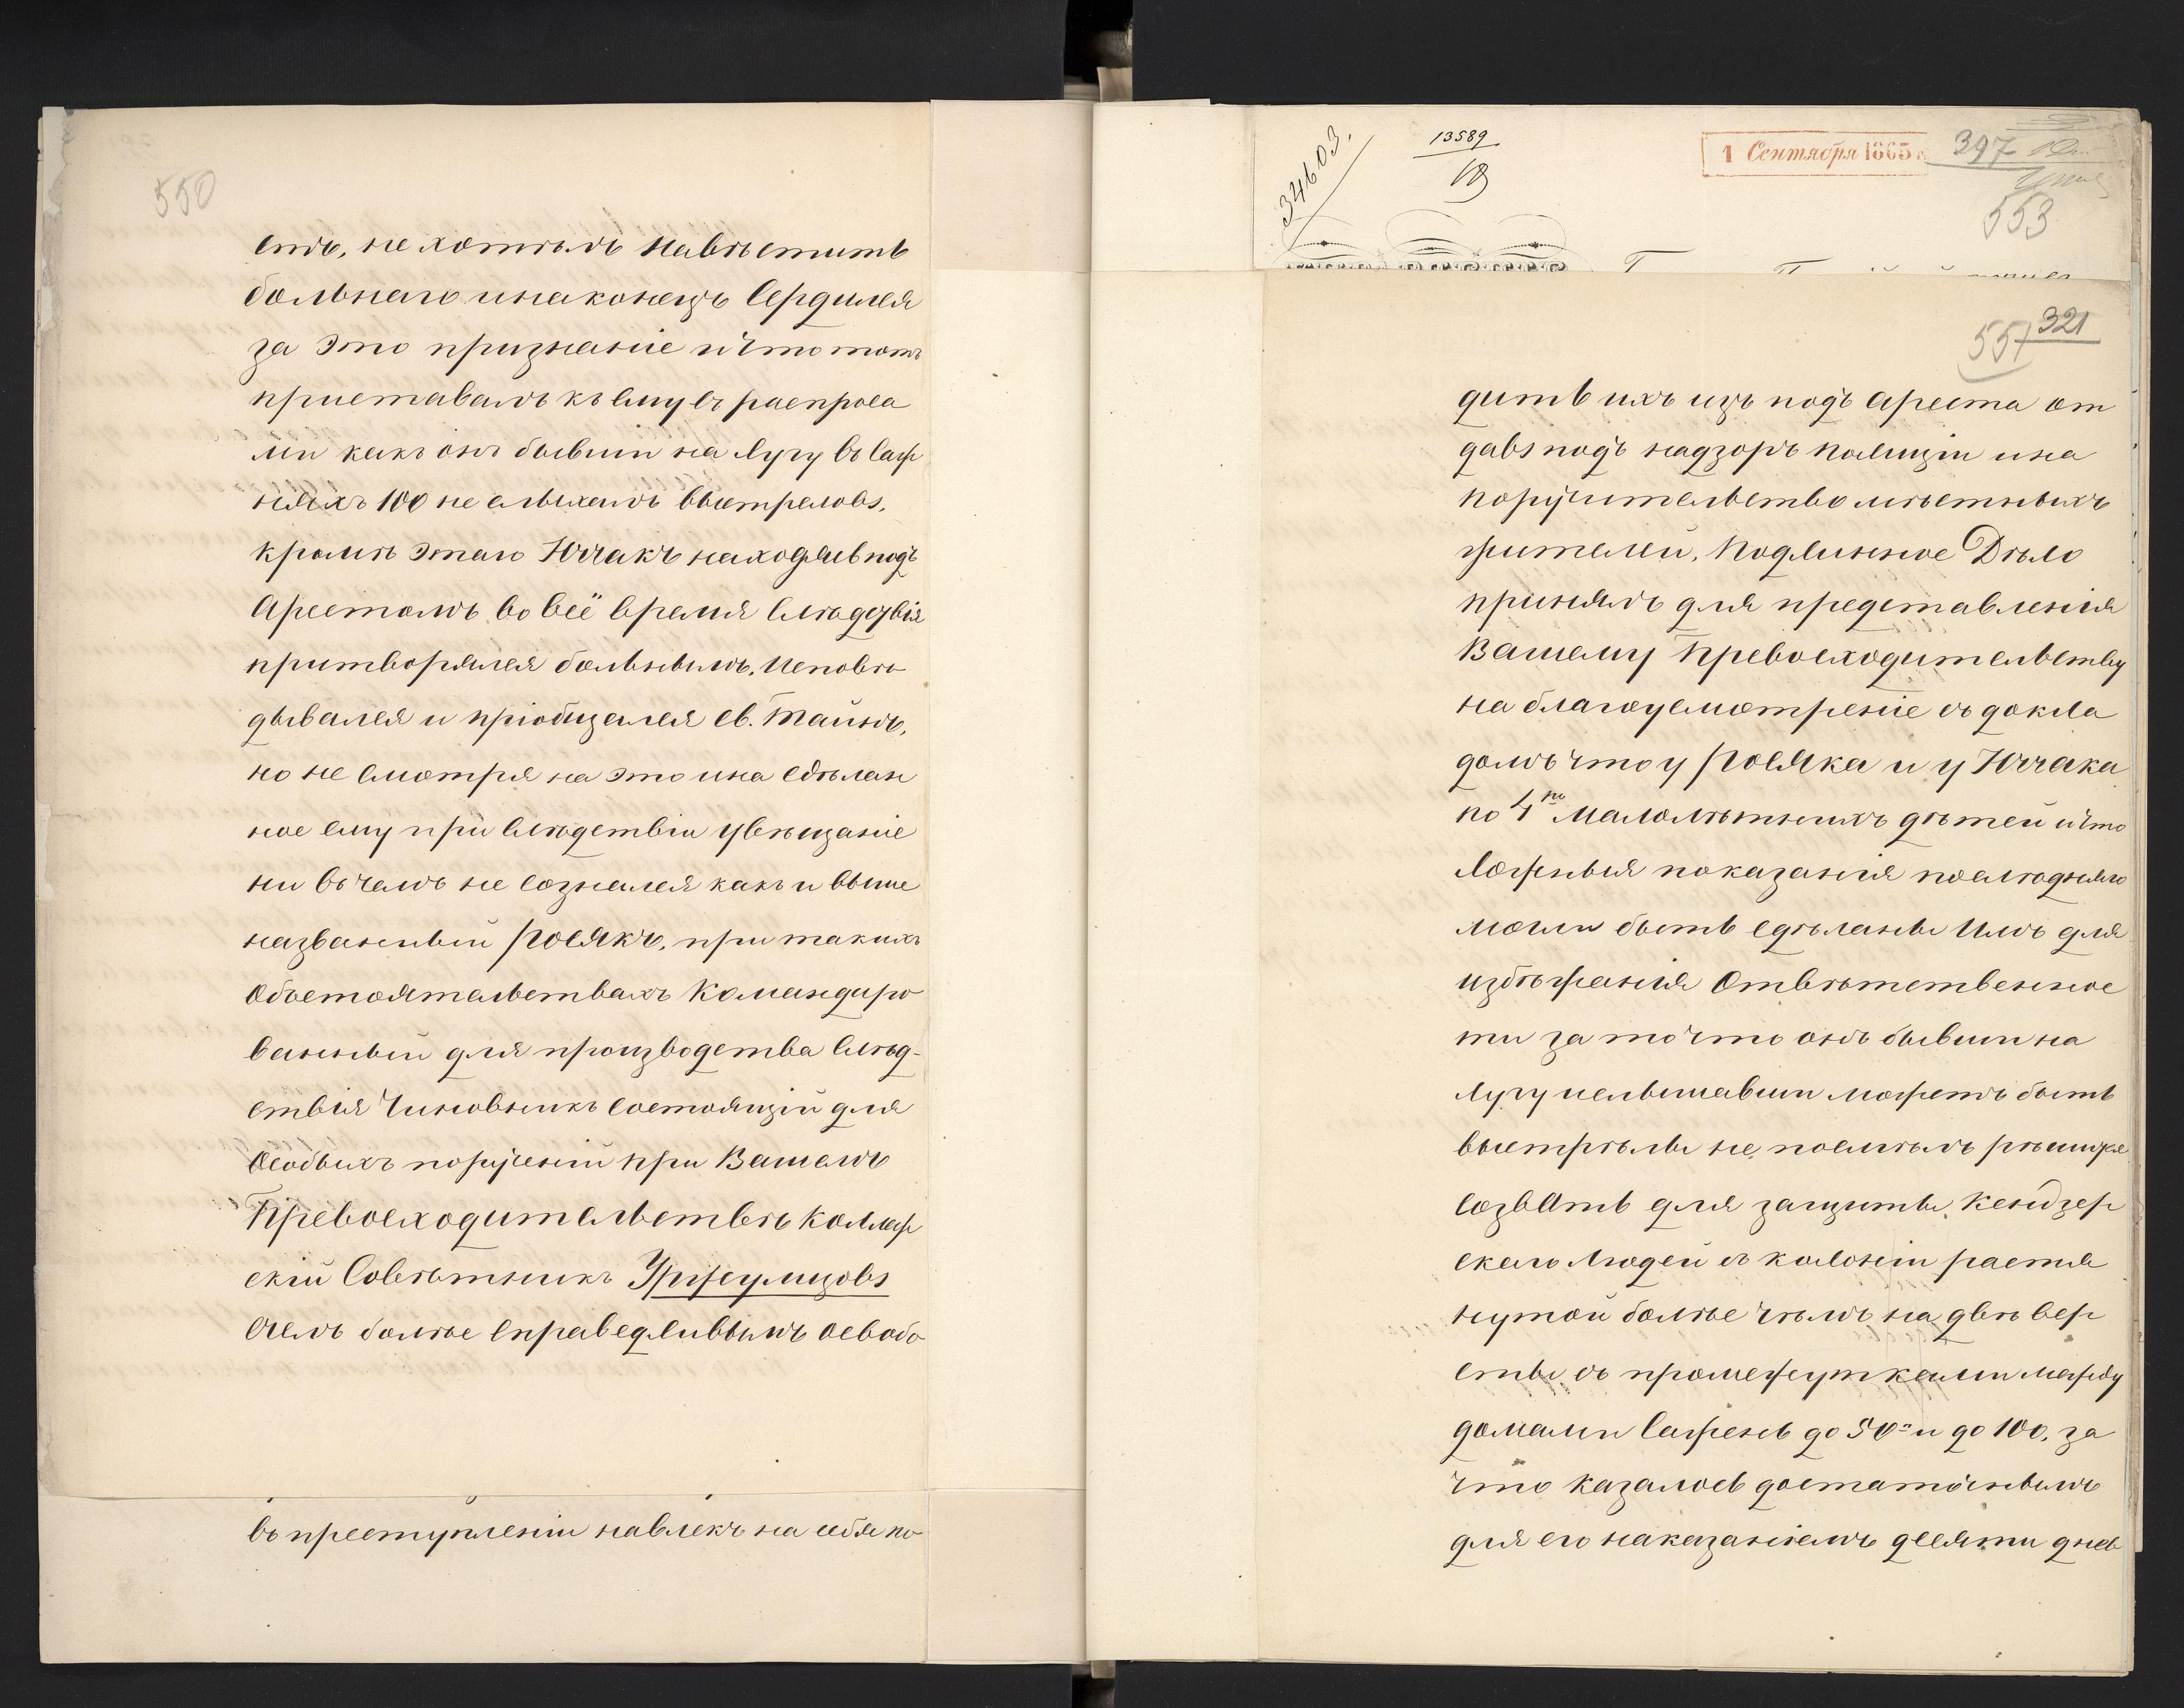 550
емъ, не хотѣлъ навѣстить
больнаго и наконецъ Сердился
за это признаніе и что тотъ
приставалъ къ ему съ распроса
ми какъ онъ бывши на лугу въ саж
няхъ 100 не слыхалъ выстреловъ,
кромѣ этаго Юччакъ находясь подъ
Арестомъ во всё время Слѣдствія
притворялся больнымъ, Исповѣ
дывался и пріобщался св. Тайнъ,
но не смотря на это и на сдѣлан
ное ему при Слѣдствіи увѣщаніе
ни въ чемъ не сознался какъ и выше
названный Рослякъ, при такихъ
Обстоятельствахъ Командиро
ванный для производства Слѣд-
ствія Чиновникъ состоящій для
Особыхъ порученій при Вашемъ
Превосходительствѣ Коллеж
скій Совѣтникъ
Счелъ болѣе справедливымъ освобо
въ преступленіи навлекъ на себя по
34603.
13589
1 Сентября 1865 г.
397
553
551
321
дить ихъ изъ подъ Ареста от
давъ подъ надзоръ полиціи и на
поручительство мѣстныхъ
жителей, подлинное Дѣло
принялъ для представленія
Вашему Превосходительству
на благоусмотреніе съ докла
домъ что у Росляка и у Юччака
по 4ро Малолѣтнихъ дѣтей и что
Ложныя показанія послѣдняго
могли быть сдѣланы Имъ для
избѣжанія Отвѣтственнос
ти за то что онъ бывши на
лугу и слышавши можетъ быть
выстрѣлы не посмѣлъ рѣшиже
Созвать для защиты
скаго людей въ колоніи растя
нутой болѣе чѣмъ на двѣ вер
сты съ промежутками между
домами Сажень до 50 и до 100, за
что казалось достаточнымъ
для его наказаніемъ десяти днев